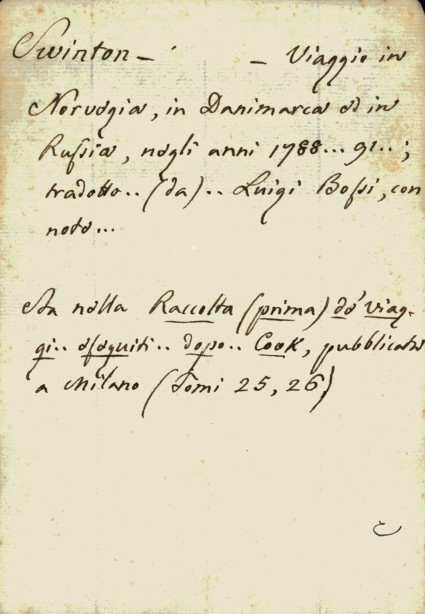 Swinton - - Viaggio in
Norvegia, in Danimarca ed in
Russia, negli anni 1788... 91..;
tradotto.. (da).. Luigi Bossi, con
note...
Sta nella Raccolta (prima) de' viag-
gi.. eseguiti.. dopo.. Cook, pubblicata
a Milano (Tomi 25, 26)